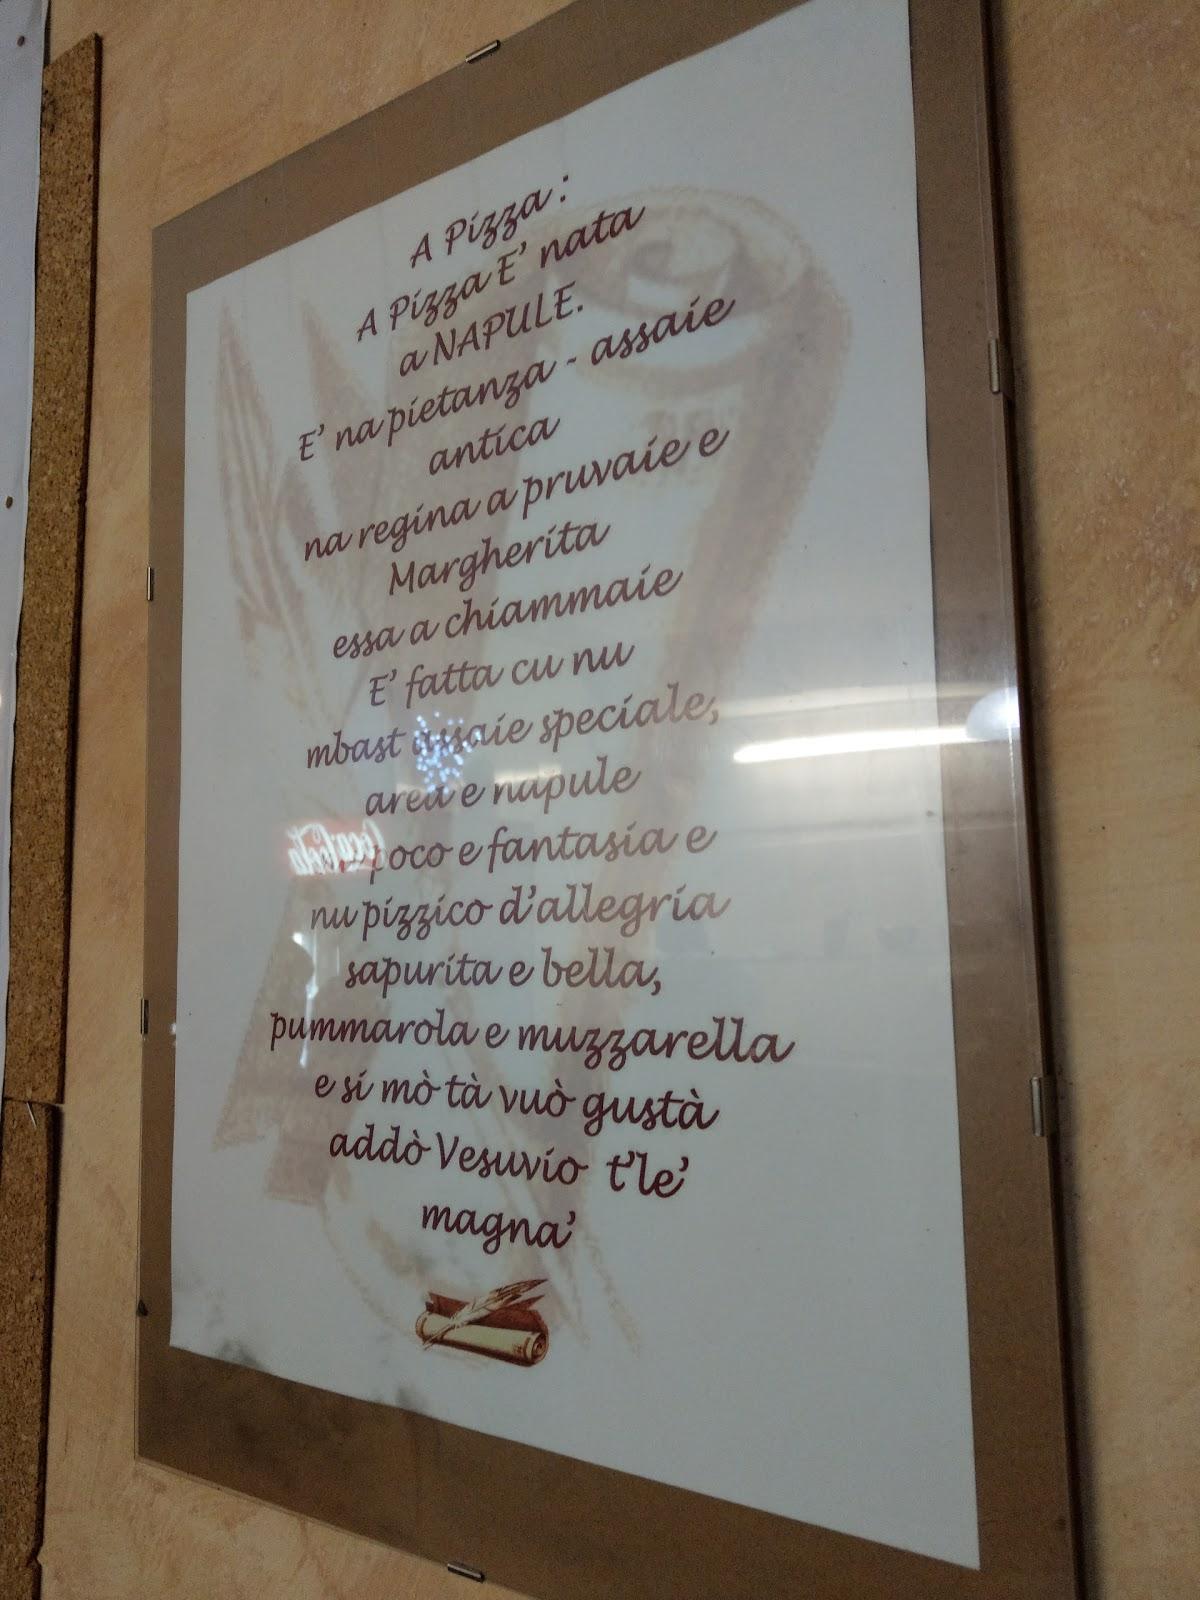 A Pizza :
A Pizza E' nata
a NAPULE.
E' na pietanza - assaie
antica
na regina a pruvaie e
Margherita
essa a chiammaie
E' fatta cu nu
mbast assaie speciale,
area e napule
poco e fantasia e
nu pizzico d'allegria
sapurita e bella,
pummarola e muzzarella
e si mò tà vuò gustà
addò Vesuvio t'le'
magna'
Coca-Cola